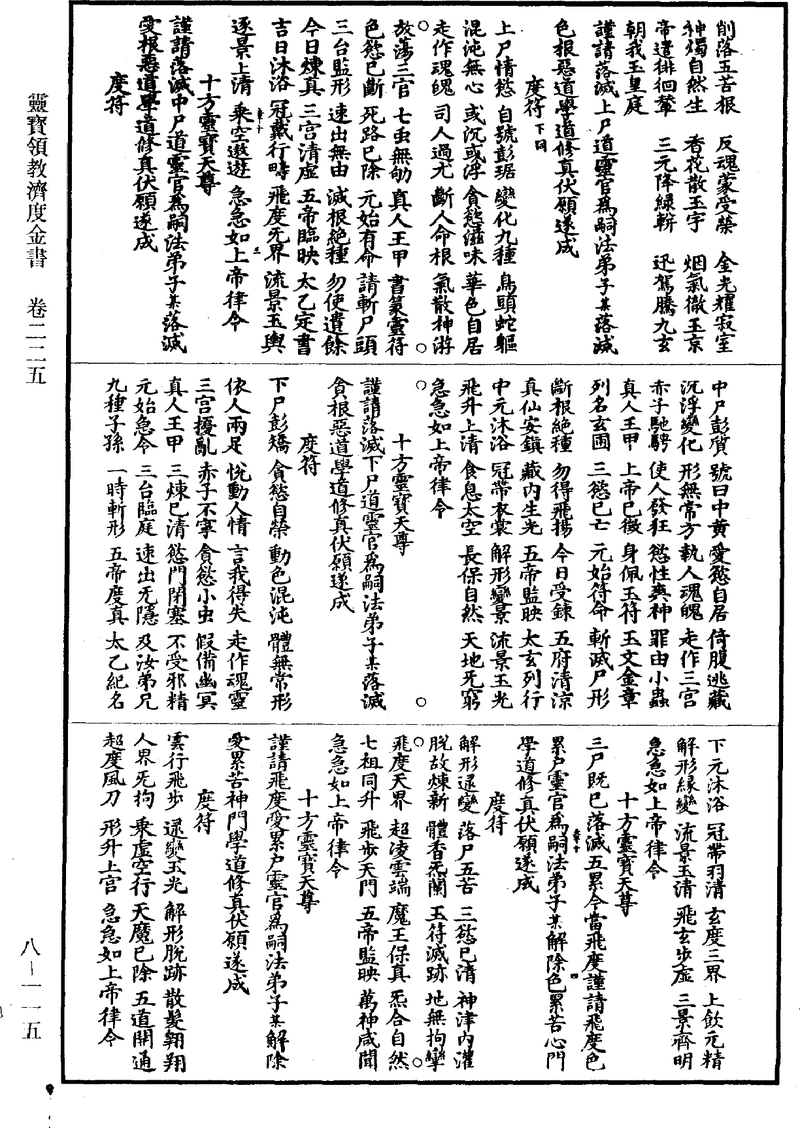 削落五苦根　反魂蒙受榮　金光耀寂室
神燭自然生　香花散玉宇　烟氣徹玉京
帝遣徘徊輦　三元降綠軿　迅駕騰九玄
朝我玉皇庭
謹請落滅上尸道靈官爲嗣法弟子某落滅
色根惡道學道修真伏願遂成
度符下同
上尸情慾　自號彭琚　變化九種　鳥頭蛇軀
混沌無心　或沉或浮　貪慾滋味　華色自居
走作魂魄　司人過尤　斷人命根　氣散神游
放蕩三宫　七虫無劬　真人王甲　書篆靈符
色慾已斷　死路已除　元始有命　請斬尸頭
三台監形　速出無由　滅根絶種　勿使遺餘
今日煉真　三宫清虛　五帝臨映　太乙定書
吉日沐浴　冠戴行疇　飛度旡界　流景玉輿
逐景上清　乘空遨遊　急急如上帝律令
十方靈寶天尊
謹請落滅中尸道靈官爲嗣法弟子某落滅
愛根惡道學道修真伏願遂成
度符
中尸彭質　號曰中黄　愛慾自居　倚腹逃藏
沉浮變化　形無常方　執人魂魄　走作三宫
赤子馳騁　使人發狂　慾性喪神　罪由小蟲
真人王甲　上帝已徵　身佩玉符　玉文金章
列名玄圃　三慾已亡　元始符命　斬滅尸形
斷根絶種　勿得飛揚　今日受鍊　五府清涼
真仙安鎮　藏内生光　五帝監映　太玄列行
中元沐浴　冠帶衣裳　解形變景　流景玉光
飛升上清　食息太空　長保自然　天地旡窮
急急如上帝律令
十方靈寶天尊
謹請落滅下尸道靈官爲嗣法弟子某落滅
貪根惡道學道修真伏願遂成
度符
下尸彭矯　貪慾自榮　動色混沌　體無常形
依人兩足　悦動人情　言我得失　走作魂靈
三宫擾亂　赤子不寧　貪慾小虫　假備幽冥
真人王甲　三煉已清　慾門閉塞　不受邪精
元始急令　三台臨庭　速出无隱　及汝弟兄
九種子孫　一時斬形　五帝度真　太乙紀名
下元沐浴　冠帶羽清　玄度三界　上飲元精
解形緣變　流景玉清　飛玄步虛　三景齊明
急急如上帝律令
十方靈寶天尊
三尸既已落滅五累今當飛度謹請飛度色
累尸靈官爲嗣法弟子某解除色累苦心門
學道修真伏願遂成
度符
解形逯變　落尸五苦　三慾已清　神津内灌
脱故煉新　體香旡蘭　玉符滅跡　地無拘攣
飛度天界　超凌雲端　魔王保真　炁合自然
七祖同升　飛步天門　五帝監映　萬神咸聞
急急如上帝律令
十方靈寶天尊
謹請飛度愛累尸靈官爲嗣法弟子某解除
愛累苦神門學道修真伏願遂成
度符
雲行飛步　逯變玉光　解形脱跡　散髮翱翔
人界旡拘　乘虛空行　天魔已除　五道開通
超度風刀　形升上宫　急急如上帝律令
靈寶領教濟度金書　卷二二五
八—一一五